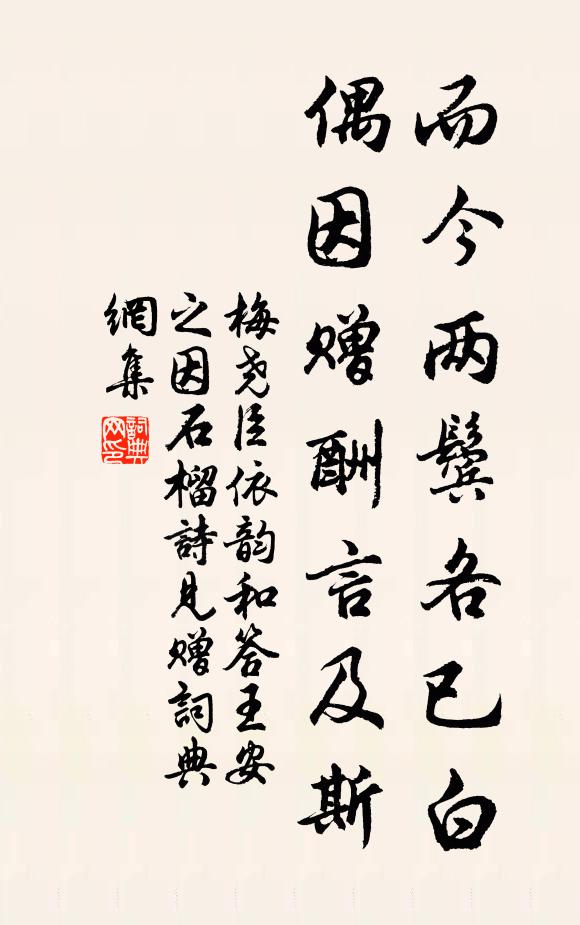 而今两鬓各已白
偶因赠酬言及斯
梅尧臣依韵和答王安
之因石榴詩見赠詞典
網集
詞典
网印